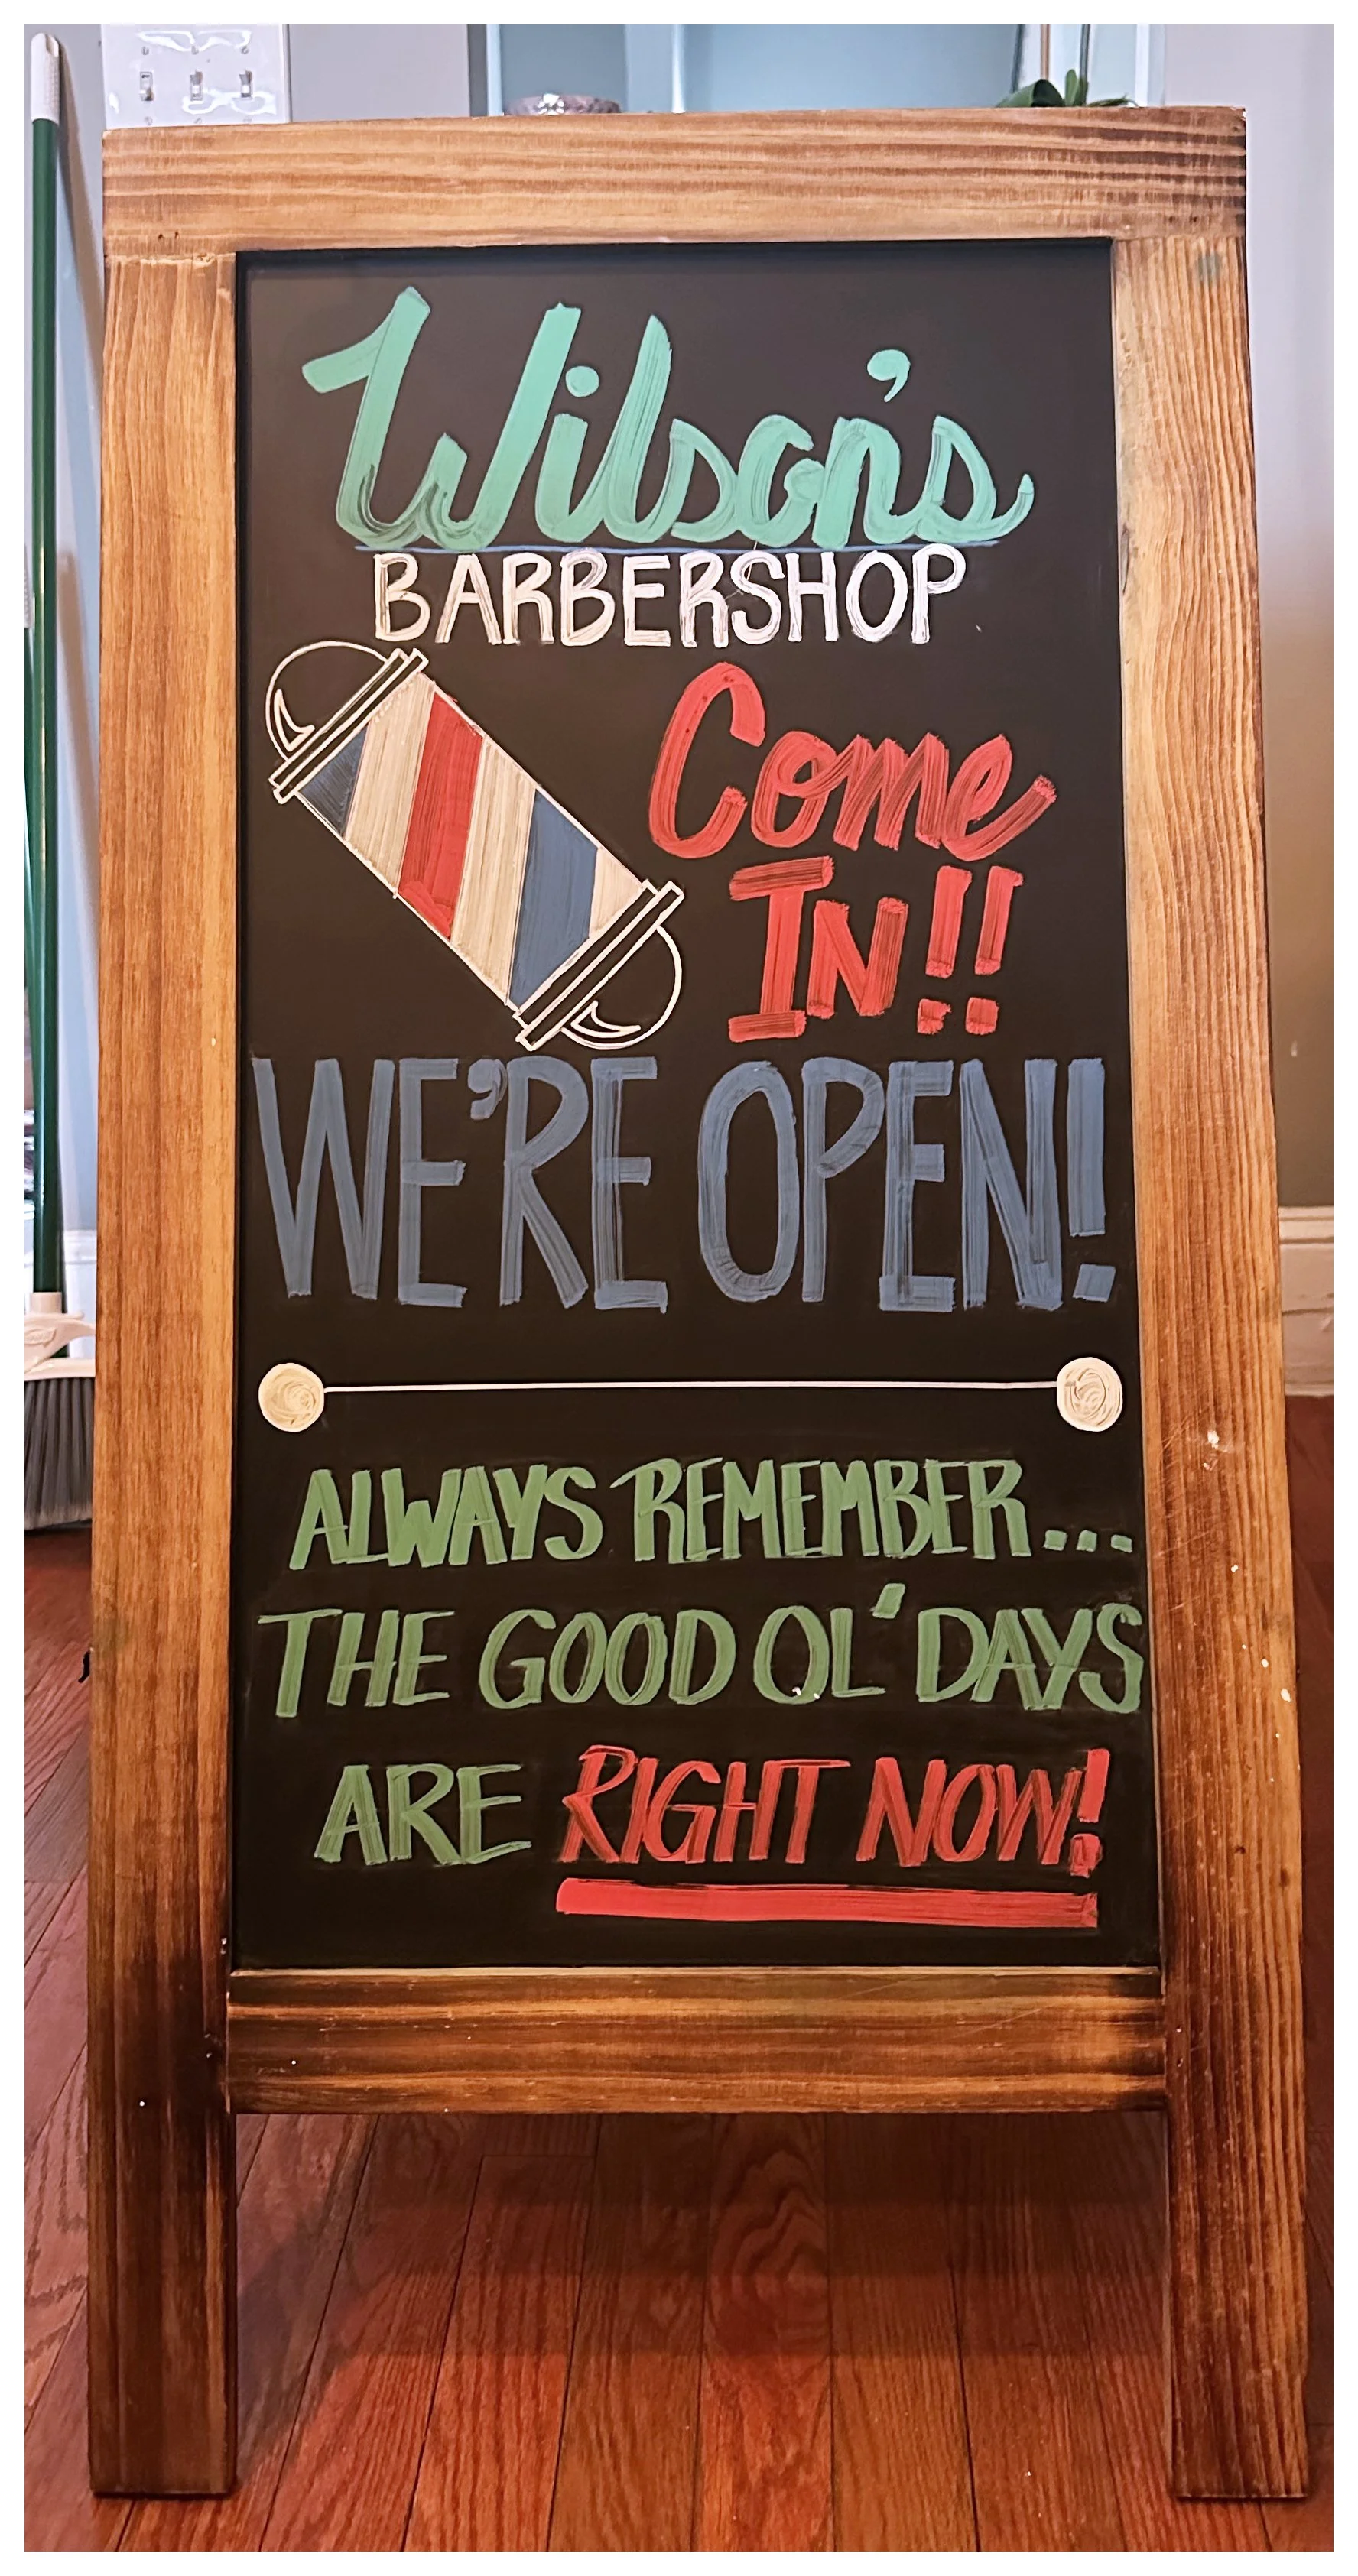 Wilson's
BARBERSHOP
Come
IN!!
WE'RE OPEN!
ALWAYS REMEMBER...
THE GOOD OL' DAYS
ARE RIGHT NOW!